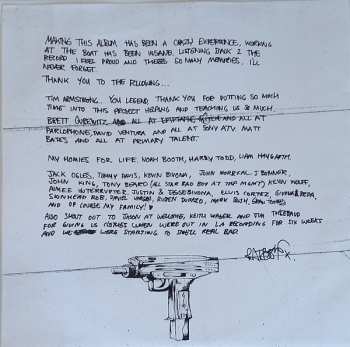 MAKING THIS ALBUM HAS BEEN A CRAZY EXPERIENCE, WORKING
AT THE BOAT HAS BEEN INSANE. LISTENING BACK 2 THE
RECORD I FEEL PROUD AND THERES SO MANY MEMORIES, I'LL
NEVER FORGET.
THANK YOU TO THE FOLLOWING...
TIM ARMSTRONG... YOU LEGEND, THANK YOU FOR PUTTING SO MUCH
TIME INTO THIS PROJECT HELPING AND TEACHING US SO MUCH.
BRETT GUREWITZ AND ALL AT EPITAPH AND ALL AT
PARLOPHONE, DAVID VENTURA AND ALL AT SONY ATV. MATT
BATES AND ALL AT PRIMARY TALENT.
MY HOMIES FOR LIFE. NOAH BOOTH, HARRY TODD, LIAM HAYGARTH.
JACK OGLES, TOMMY DAVIS, KEVIN BIVONA, JOHN MORRICAL, J BONNER,
JOHN KING, TONY BEARD (ALL STAR BAD BOY AT MGMT) KEVIN WOLFF,
AIMEE INTERRUPTER, JUSTIN & JESSE BIVONA, ELVIS CORTEZ,
SKINHEAD ROB, DAVID VARGAS, RUBEN DURAZO, MARK
AND OF COURSE MY FAMILY!
ALSO SHOUT OUT TO JASON AT WELCOME, KEITH WAGER AND TIM
FOR GIVING US CLOTHES WHEN WERE OUT IN LA RECORDING FOR SIX WEEKS
AND WE WERE STARTING TO SMELL REAL BAD.